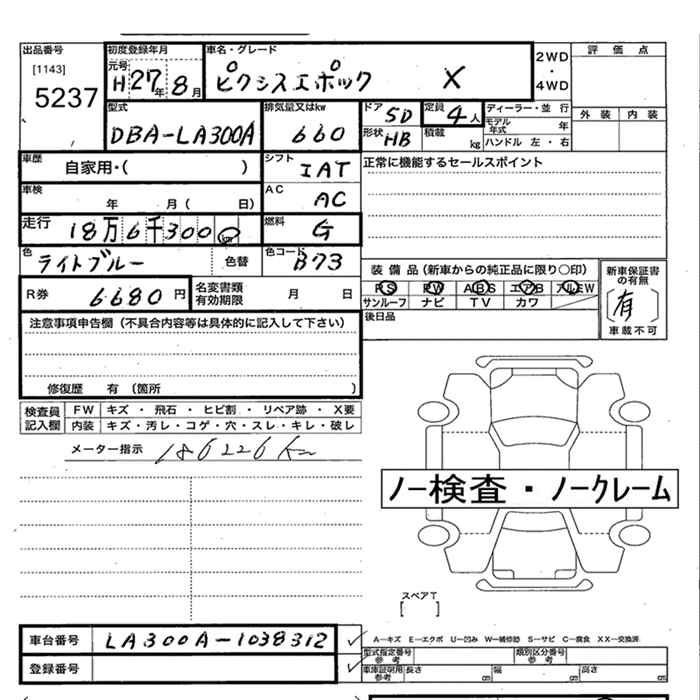 出品番号
[1143]
5237
初度登録年月
元号 H 27年 8月
車名・グレード
ピクシスエポック X
2WD
・
4WD
評価点
外装 内装
型式
DBA-LA300A
排気量又はkw
660
ドア 5D
形状 HB
定員 4人
積載 kg
ディーラー・並行
モデル年式 年
ハンドル 左・右
車歴 自家用・( )
シフト IAT
正常に機能するセールスポイント
車検 年 月( 日)
AC AC
走行 18万6千300 km
燃料 G
色 ライトブルー 色替
色コード B73
R券 6680円
名変書類有効期限 月 日
装備品(新車からの純正品に限り○印)
PS PW ABS エアB アルミW
サンルーフ ナビ TV カワ
新車保証書の有無
[有]
車載不可
後日品
注意事項申告欄(不具合内容等は具体的に記入して下さい)
修復歴 有(箇所 )
検査員記入欄
FW キズ・飛石・ヒビ割・リペア跡・X要
内装 キズ・汚レ・コゲ・穴・スレ・キレ・破レ
メーター指示 186226km
ノー検査・ノークレーム
スペアT
[ ]
車台番号 LA300A-1038312
登録番号
A-キズ E-エクボ U-凹み W-補修跡 S-サビ C-腐食 XX-交換済
型式指定番号 参考
類別区分番号 参考
車庫証明用 参考 長さ cm 幅 cm 高さ cm